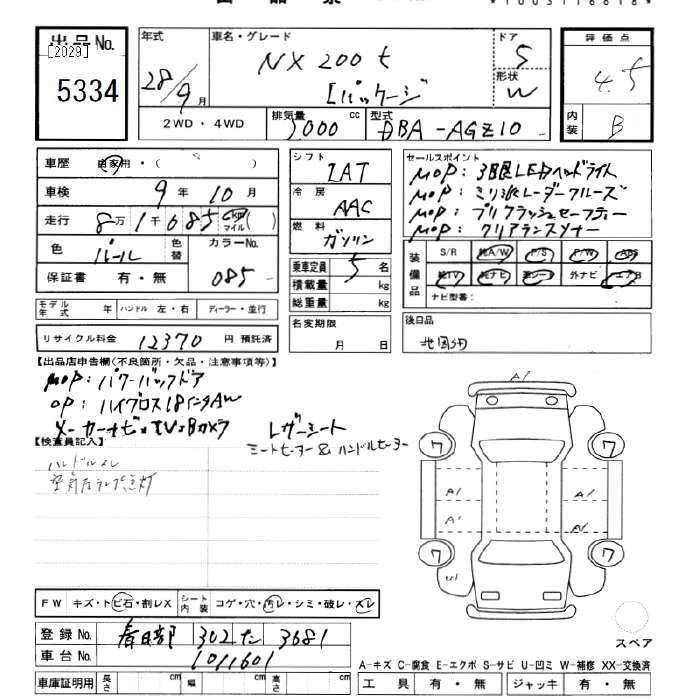 出品No.
[2029]
5334
年式
28/9月
車名・グレード
NX 200t
Iパッケージ
ドア
5
形状
W
評価点
4.5
内装
B
2WD・4WD
排気量 2000 cc
型式 DBA-AGZ10
車歴 自家用・( )
車検 9年10月
走行 8万1千685 km マイル( )
色 パール 色替
カラーNo. 085
保証書 有・無
シフト IAT
冷房 AAC
燃料 ガソリン
乗車定員 5名
積載量 kg
総重量 kg
名変期限
月 日
セールスポイント
MOP:3眼LEDヘッドライト
MOP:ミリ波レーダークルーズ
MOP:プリクラッシュセーフティー
MOP:クリアランスソナー
装備品
S/R 純A/W P/S P/W ABS
純TV 純ナビ 革シート 外ナビ エアB
ナビ型番:
モデル年式 年
ハンドル 左・右
ディーラー・並行
リサイクル料金 12370 円預託済
後日品
地図SD
【出品店申告欄(不良箇所・欠品・注意事項等)】
MOP:パワーバックドア
OP:ハイブロス18インチAW
メーカーナビ・TV・Bカメラ
レザーシート
シートヒーター&ハンドルヒーター
【検査員記入】
ハンドルスレ
空気圧ランプ点灯
A1
ワ ワ
A1 A1
A1 A1
ワ ワ
U1
スペア
FW キズ・トビ石・割レX
シート内装 コゲ・穴・汚レ・シミ・破レ・スレ
登録No. 春日部 302 た 3681
車台No. 1011601
車庫証明用 長さ cm 幅 cm 高さ cm
A-キズ C-腐食 E-エクボ S-サビ U-凹ミ W-補修 XX-交換済
工具 有・無 ジャッキ 有・無